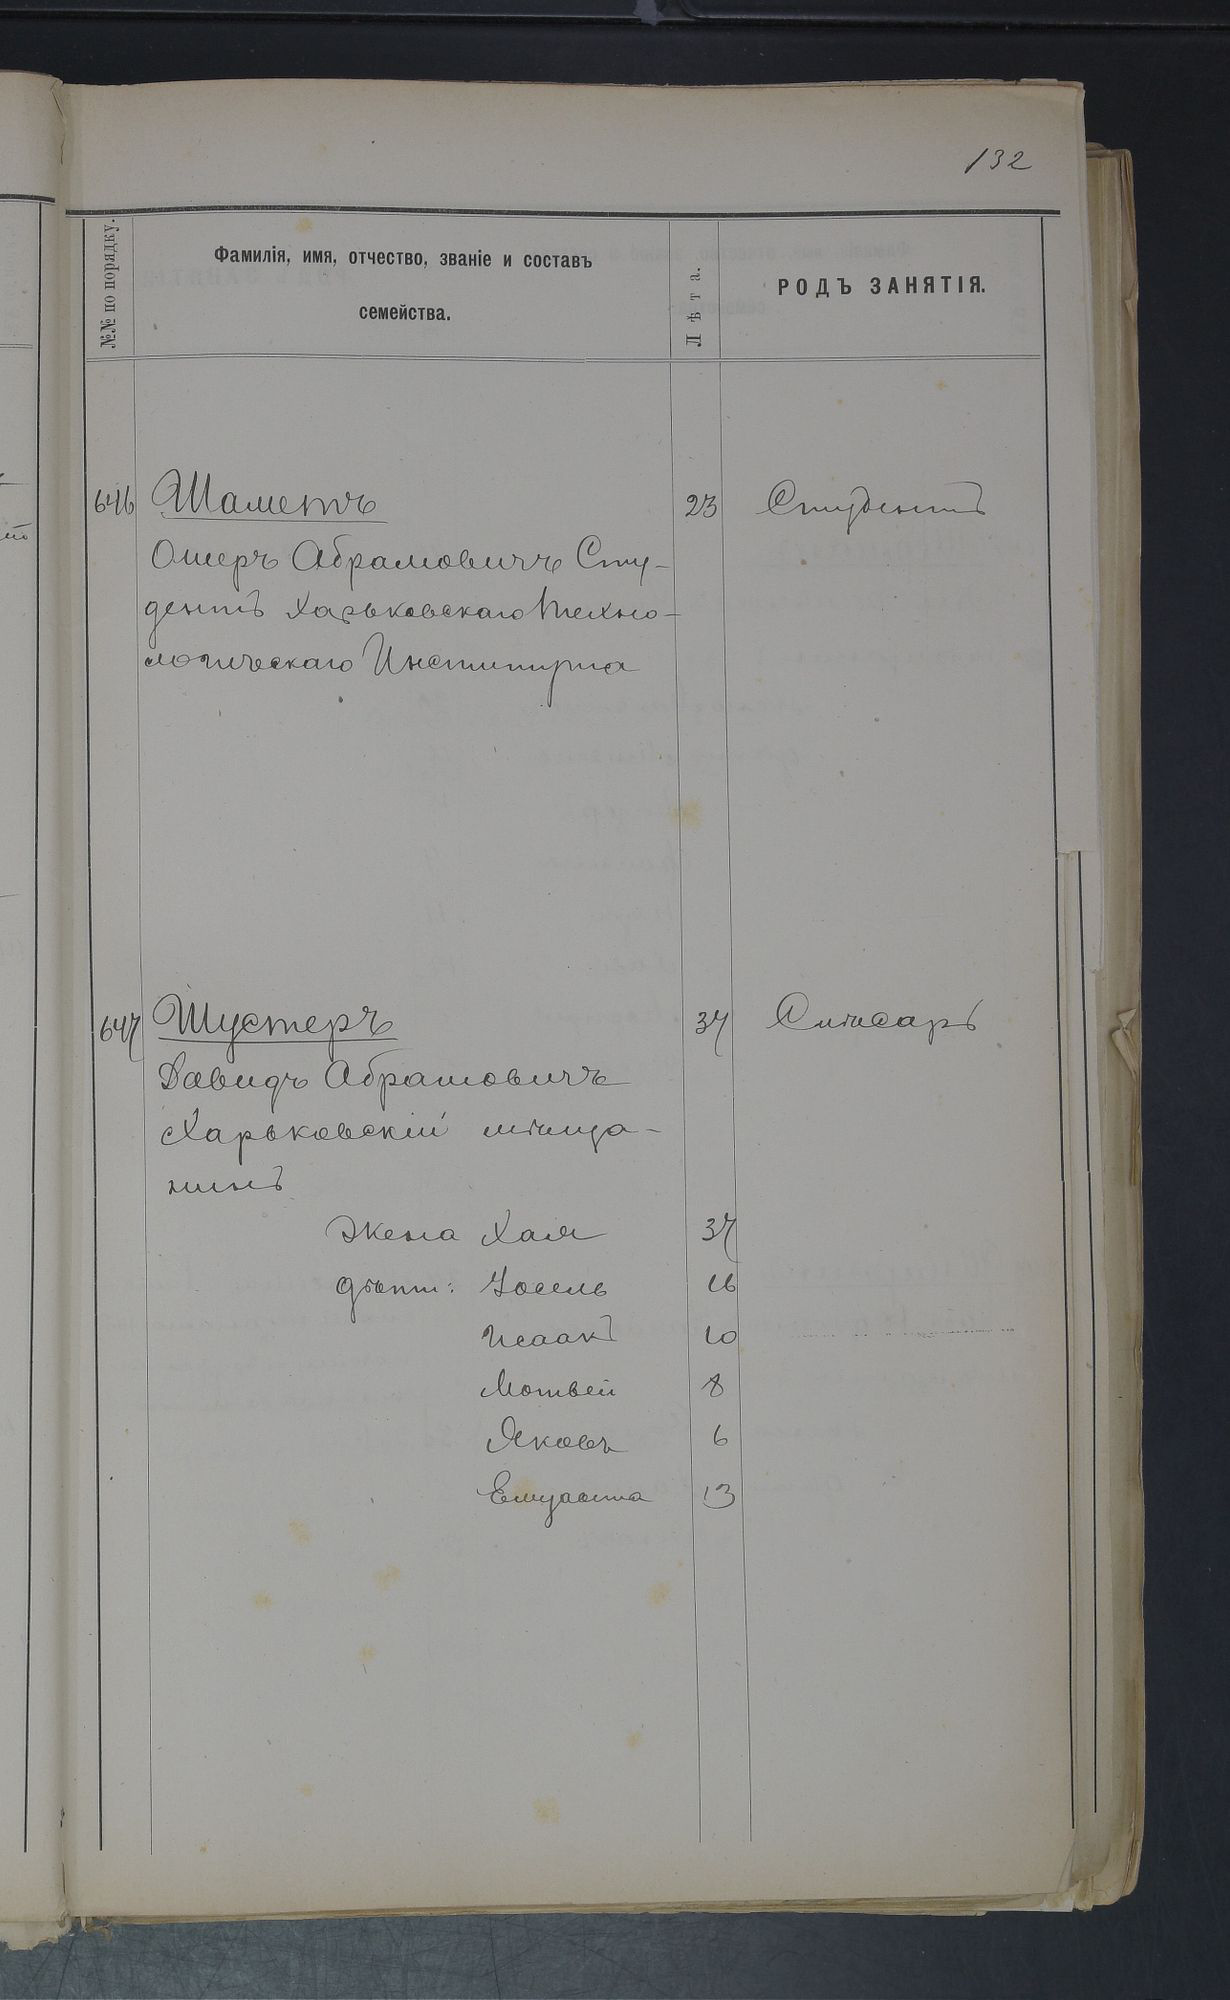 132
№№ по порядку.
Фамилія, имя, отчество, званіе и составъ
семейства.
Лѣта.
РОДЪ ЗАНЯТІЯ.
646 Шаметъ 23 Студентъ
Ошеръ Абрамовичъ Сту-
дентъ Харьковскаго Техно-
логическаго Института
647 Шустеръ 37 Слѣсарь
Давидъ Абрамовичъ
Харьковскій мѣща-
нинъ
Жена Хая 37
дѣти: Іосель 16
Исаакъ 10
Матвей 8
Яковъ 6
13